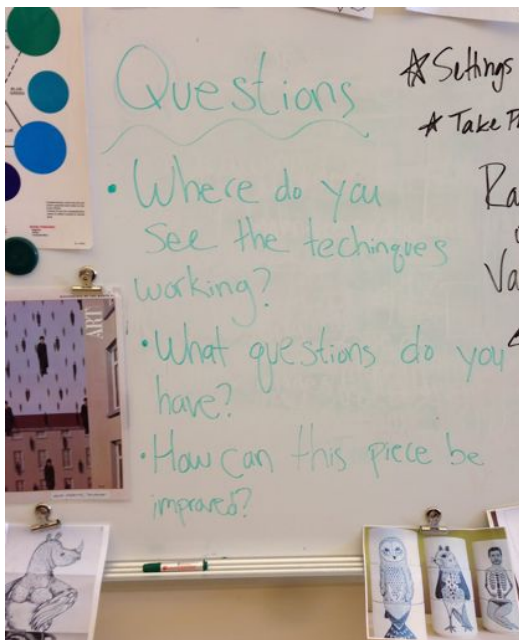 Questions
• Where do you
see the techinques
working?
• What questions do you
have?
• How can this piece be
improved?
☆ Settings
☆ Take
ART